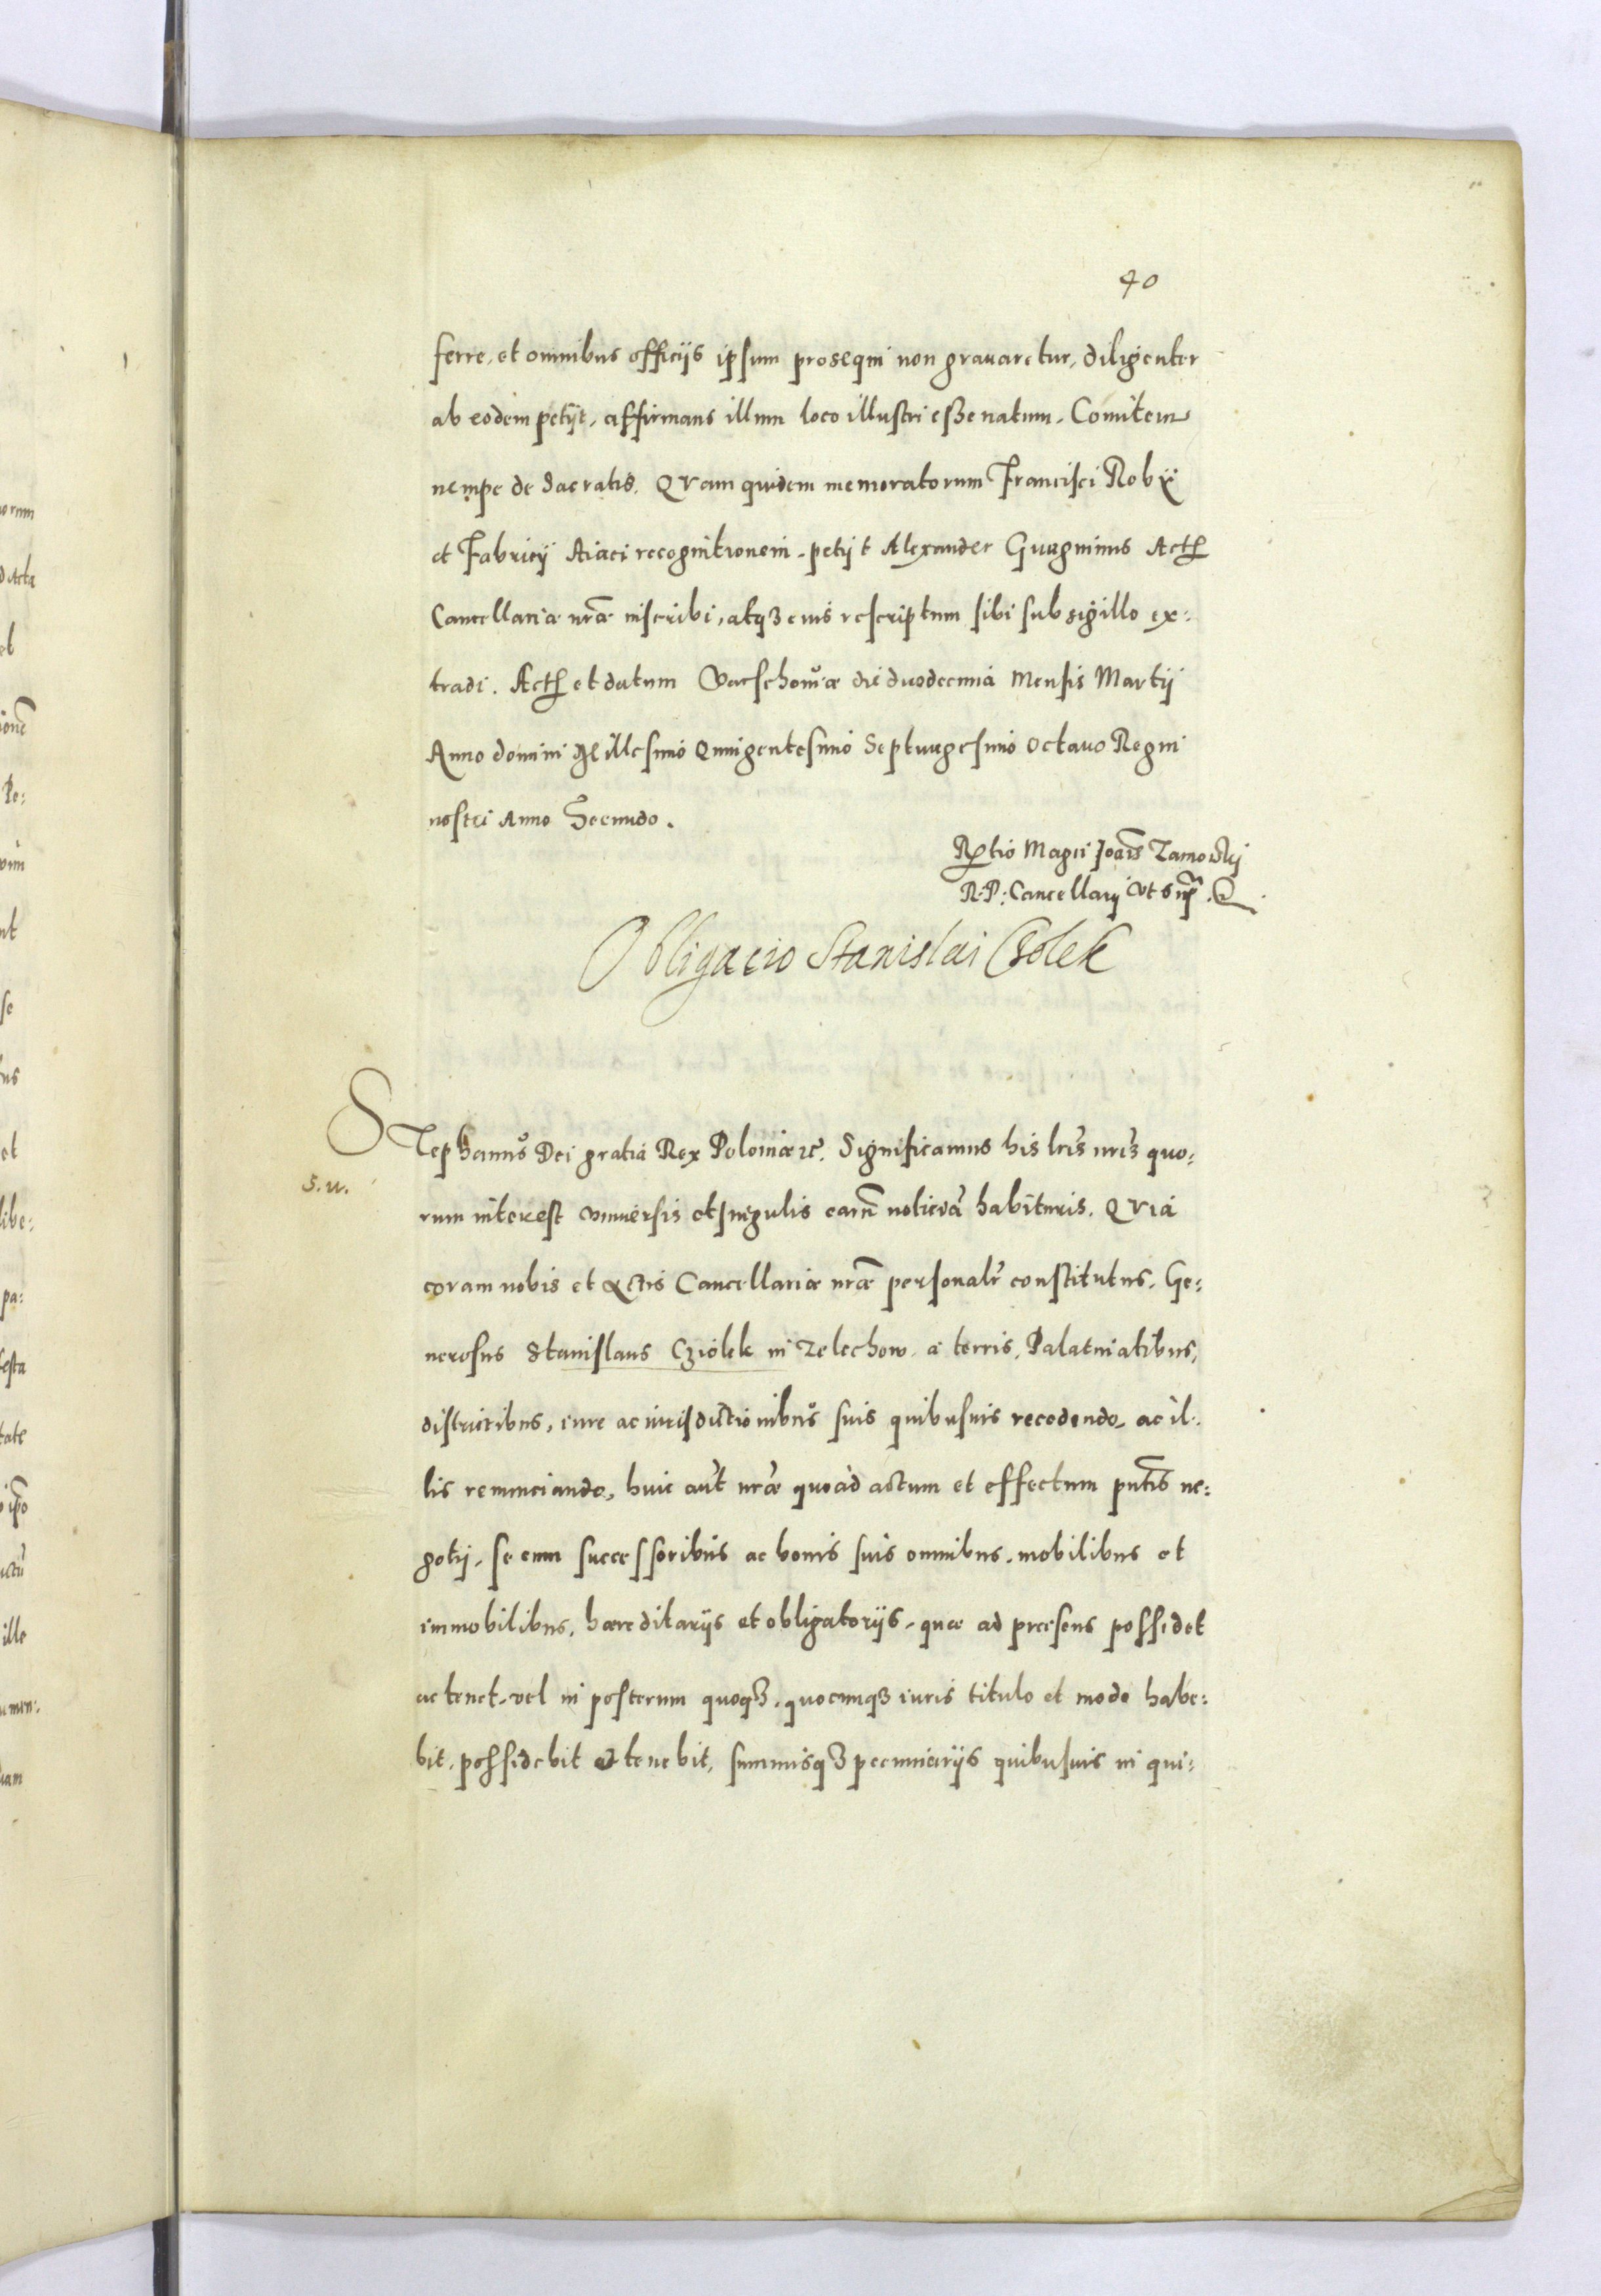 40
ferre, et omnibus officijs ipsum prosequi non grauaretur, diligenter
ab eodem petijt, affirmans illum loco illustri esse natum, Comitem
nempe de Sacratis. QVam quidem memoratorum Francisci Robx
et Fabricij Aiaci recognitionem, petijt Alexander Guagninus Act̃
Cancellariæ nr̃æ inscribi, atqȝ eius rescriptum sibi sub sigillo ex:
tradi. Act̃ et datum Varschouiæ die duodecima Mensis Martij
Anno domini Millesimo Quingentesimo Septuagesimo Octauo Regni
nostri Anno Secundo.
Rl̃tio Magci Joãis Zamoiskij
R: P: Cancellarij Vt sup̃.
Obligacio Stanislai Czolek
STephanus Dei gratia Rex Poloniæ ꝛc̃. Significamus his lr̃is nr̃is quo:
S. u.
rum interest vniuersis et singulis earum̃ noticiã habituris. QVia
coram nobis et Actis Cancellariæ nr̃æ personalr̃ constitutus, Ge:
nerosus Stanislaus Cziolek in Zelechow a terris, Palatinatibus,
districtibus, iure ac iurisdictionibus suis quibusuis recedendo, ac il:
lis renunciando, huic aũt nr̃æ quoad actum et effectum pñtis ne:
gotij, se cum successoribus ac bonis suis omnibus, mobilibus et
immobilibus, hæreditarijs et obligatorijs, quæ ad præsens possidet
ac tenet, vel in posterum quoqȝ, quocunqȝ iuris titulo et modo habe:
bit, possidebit et tenebit, summisqȝ pecuniarijs quibusuis in qui: